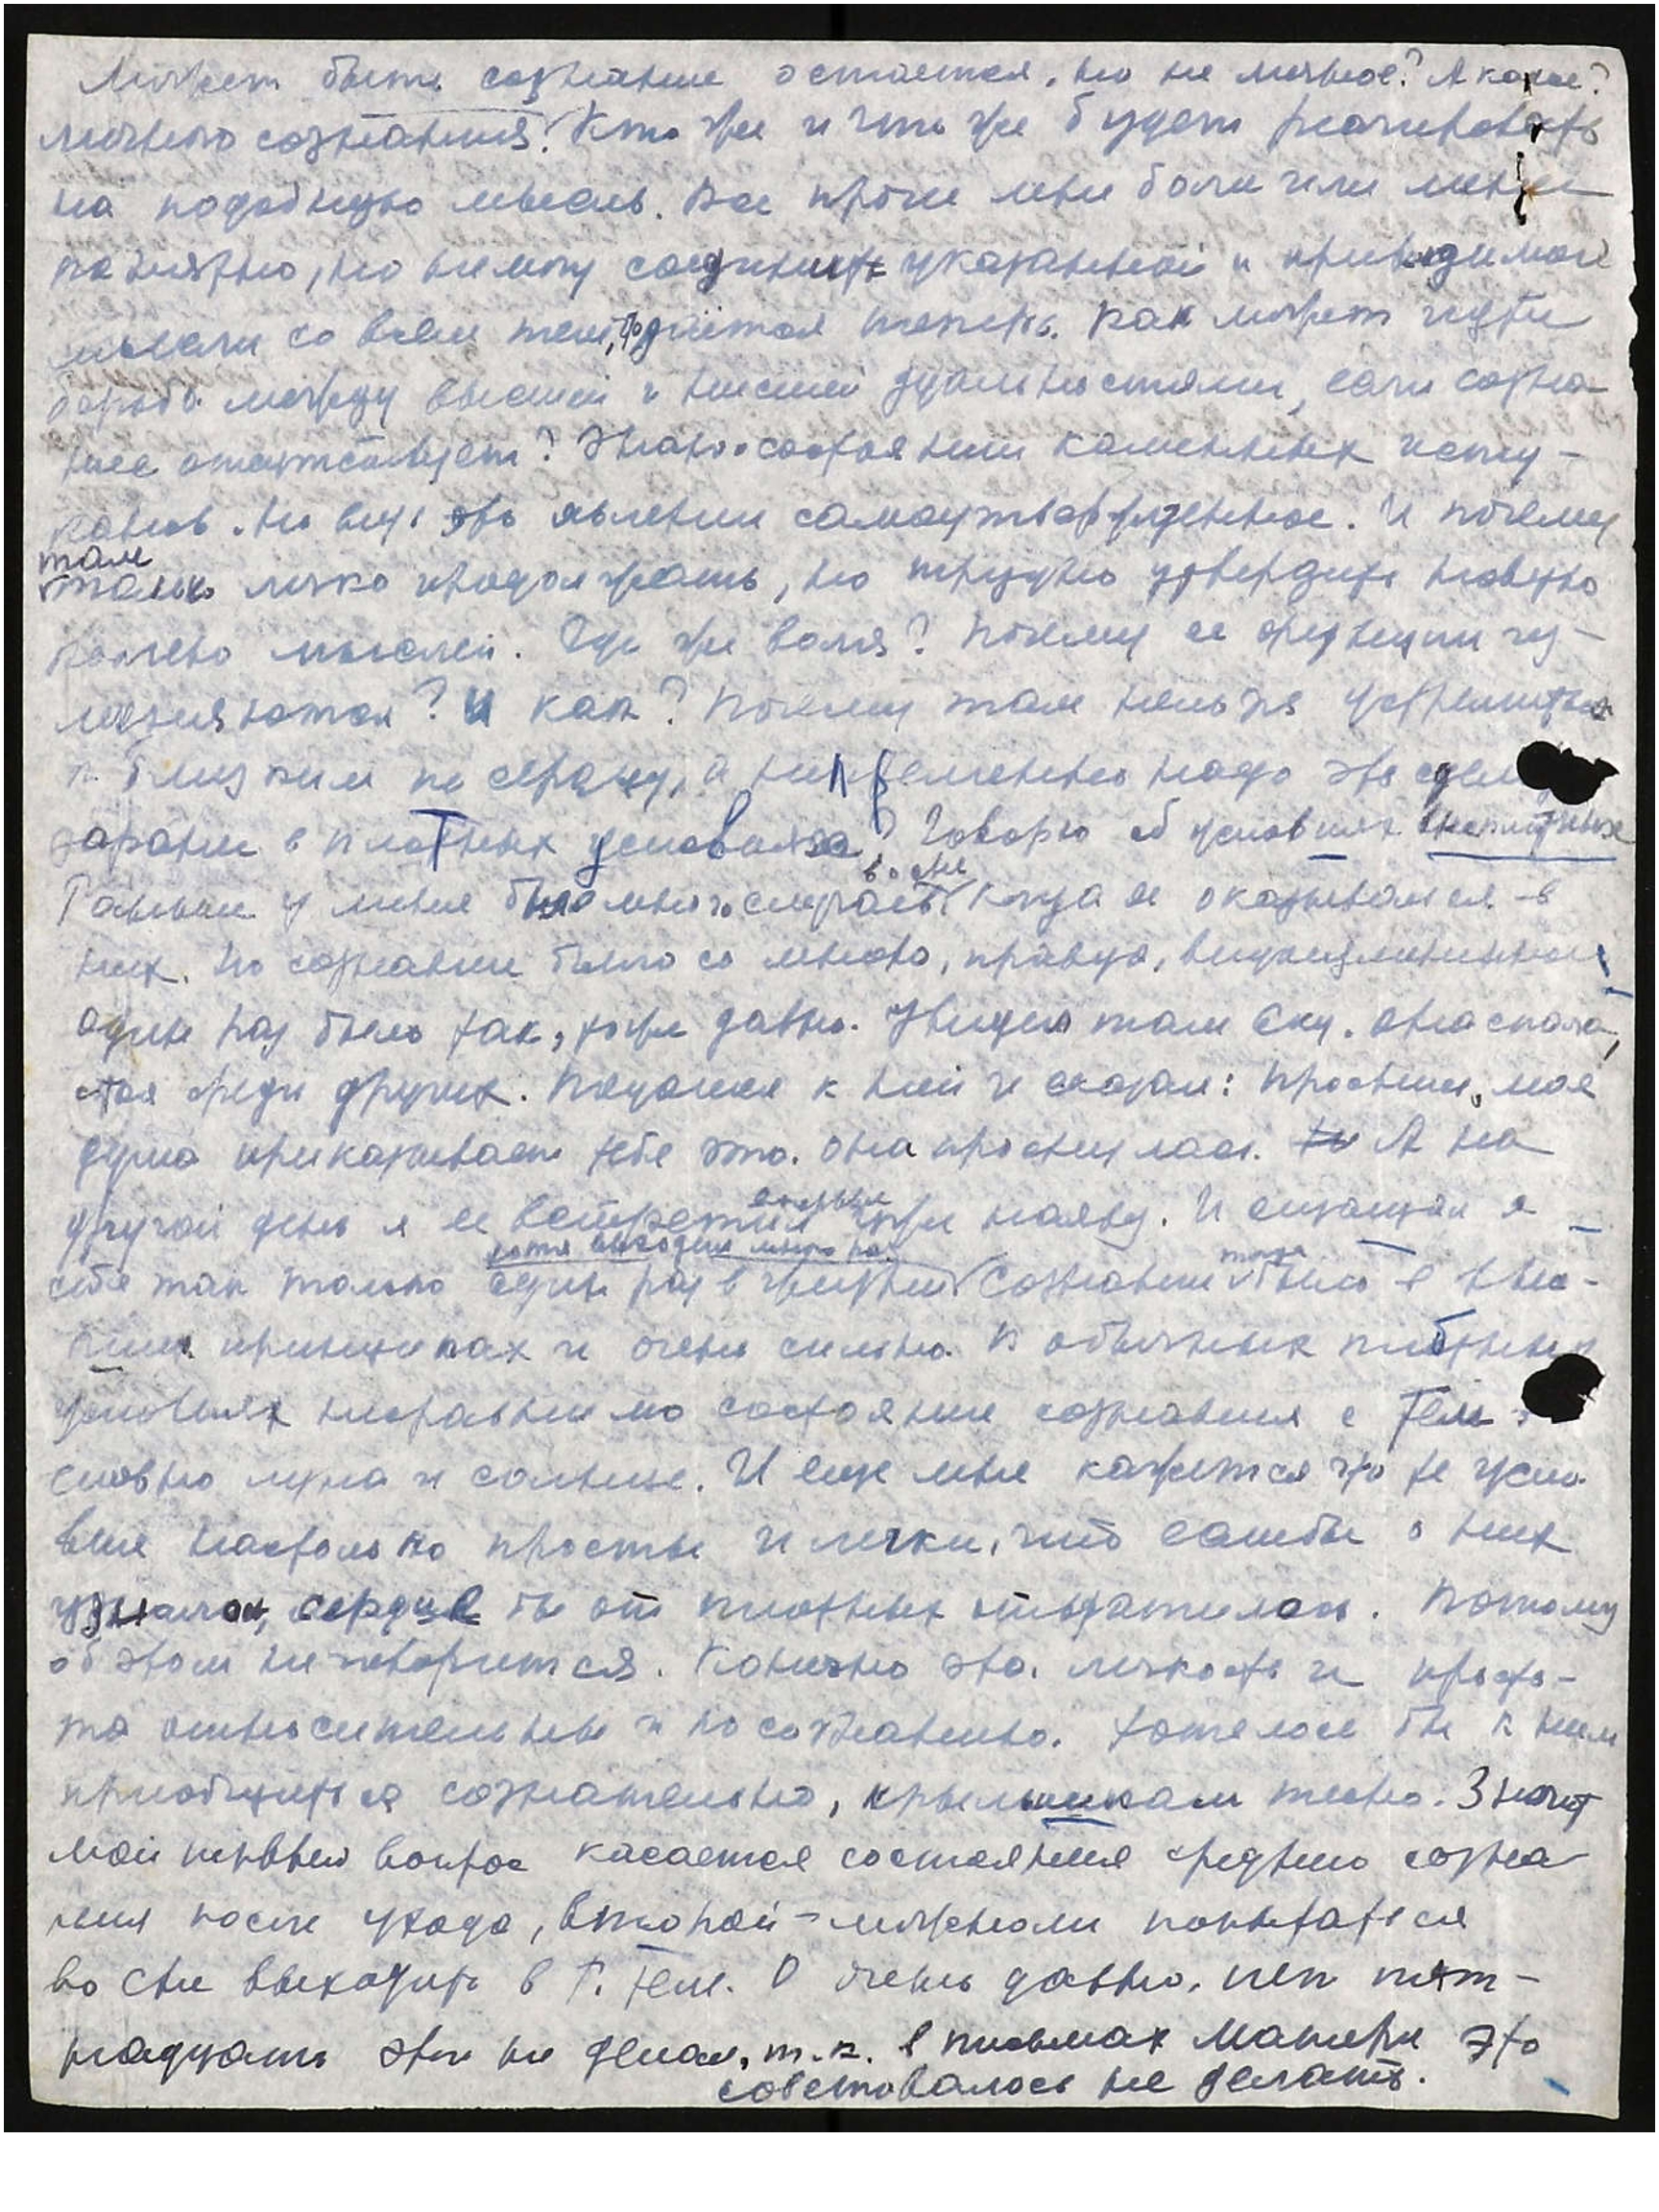 Может быть сознание остается, но не личное? А какое?
личного сознания? Кто же и что же будет реагировать
на подобную мысль. Все прочее мне более или менее
понятно, но не могу соединить указанной и приводимой
мысли со всем тем, что дается теперь. Как может идти
борьба между высшей и низшей дуальностями, если созна
ние отсутствует? Знаю о состоянии каменных исту-
канов. Но ведь это явление самоутвержденное. И почему
там
только легко продолжать, но трудно утвердить новую
мыслей. Где же воля? Почему ее функции из-
меняются? И как? Почему там нельзя устремиться
к близким по сердцу, а непременно надо это сделать
заранее в плотных условиях? Говорю об условиях внеплотных
во сне
Раньше у меня было много случаев когда я оказывался в
них. Но сознание было со мною, правда, видоизмененное
один раз было так, тоже давно. Увидел там Ску. Она спала,
стоя среди других. Подошел к ней и сказал: проснись, моя
душа приказывает тебе это. Она проснулась. А на
другой день я ее встретил уже наяву. И ощущал я
хотя выходил много раз
себя так только один раз в жизни Сознание тогда было в выс-
ших принципах и очень сильно. В обычных плотных
условиях несравнимо состояние сознания с тем
словно луна и солнце. И еще мне кажется что те усло
вия настолько просты и легки, что если бы о них
узналось, сердце бы от плотных отвратилось. Потому
об этом не говорится. Конечно эта легкость и просто-
та относительны и по сознанию. Хотелось бы к ним
приобщиться сознательно, крылышкам тесно. Значит
мой первый вопрос касается состояния среднего созна
ния после ухода, второй – можно ли попытаться
во сне выходить в т. теле. Я очень давно, лет пят-
надцать этого не делал, т.к. в письмах Матери это
советовалось не делать.